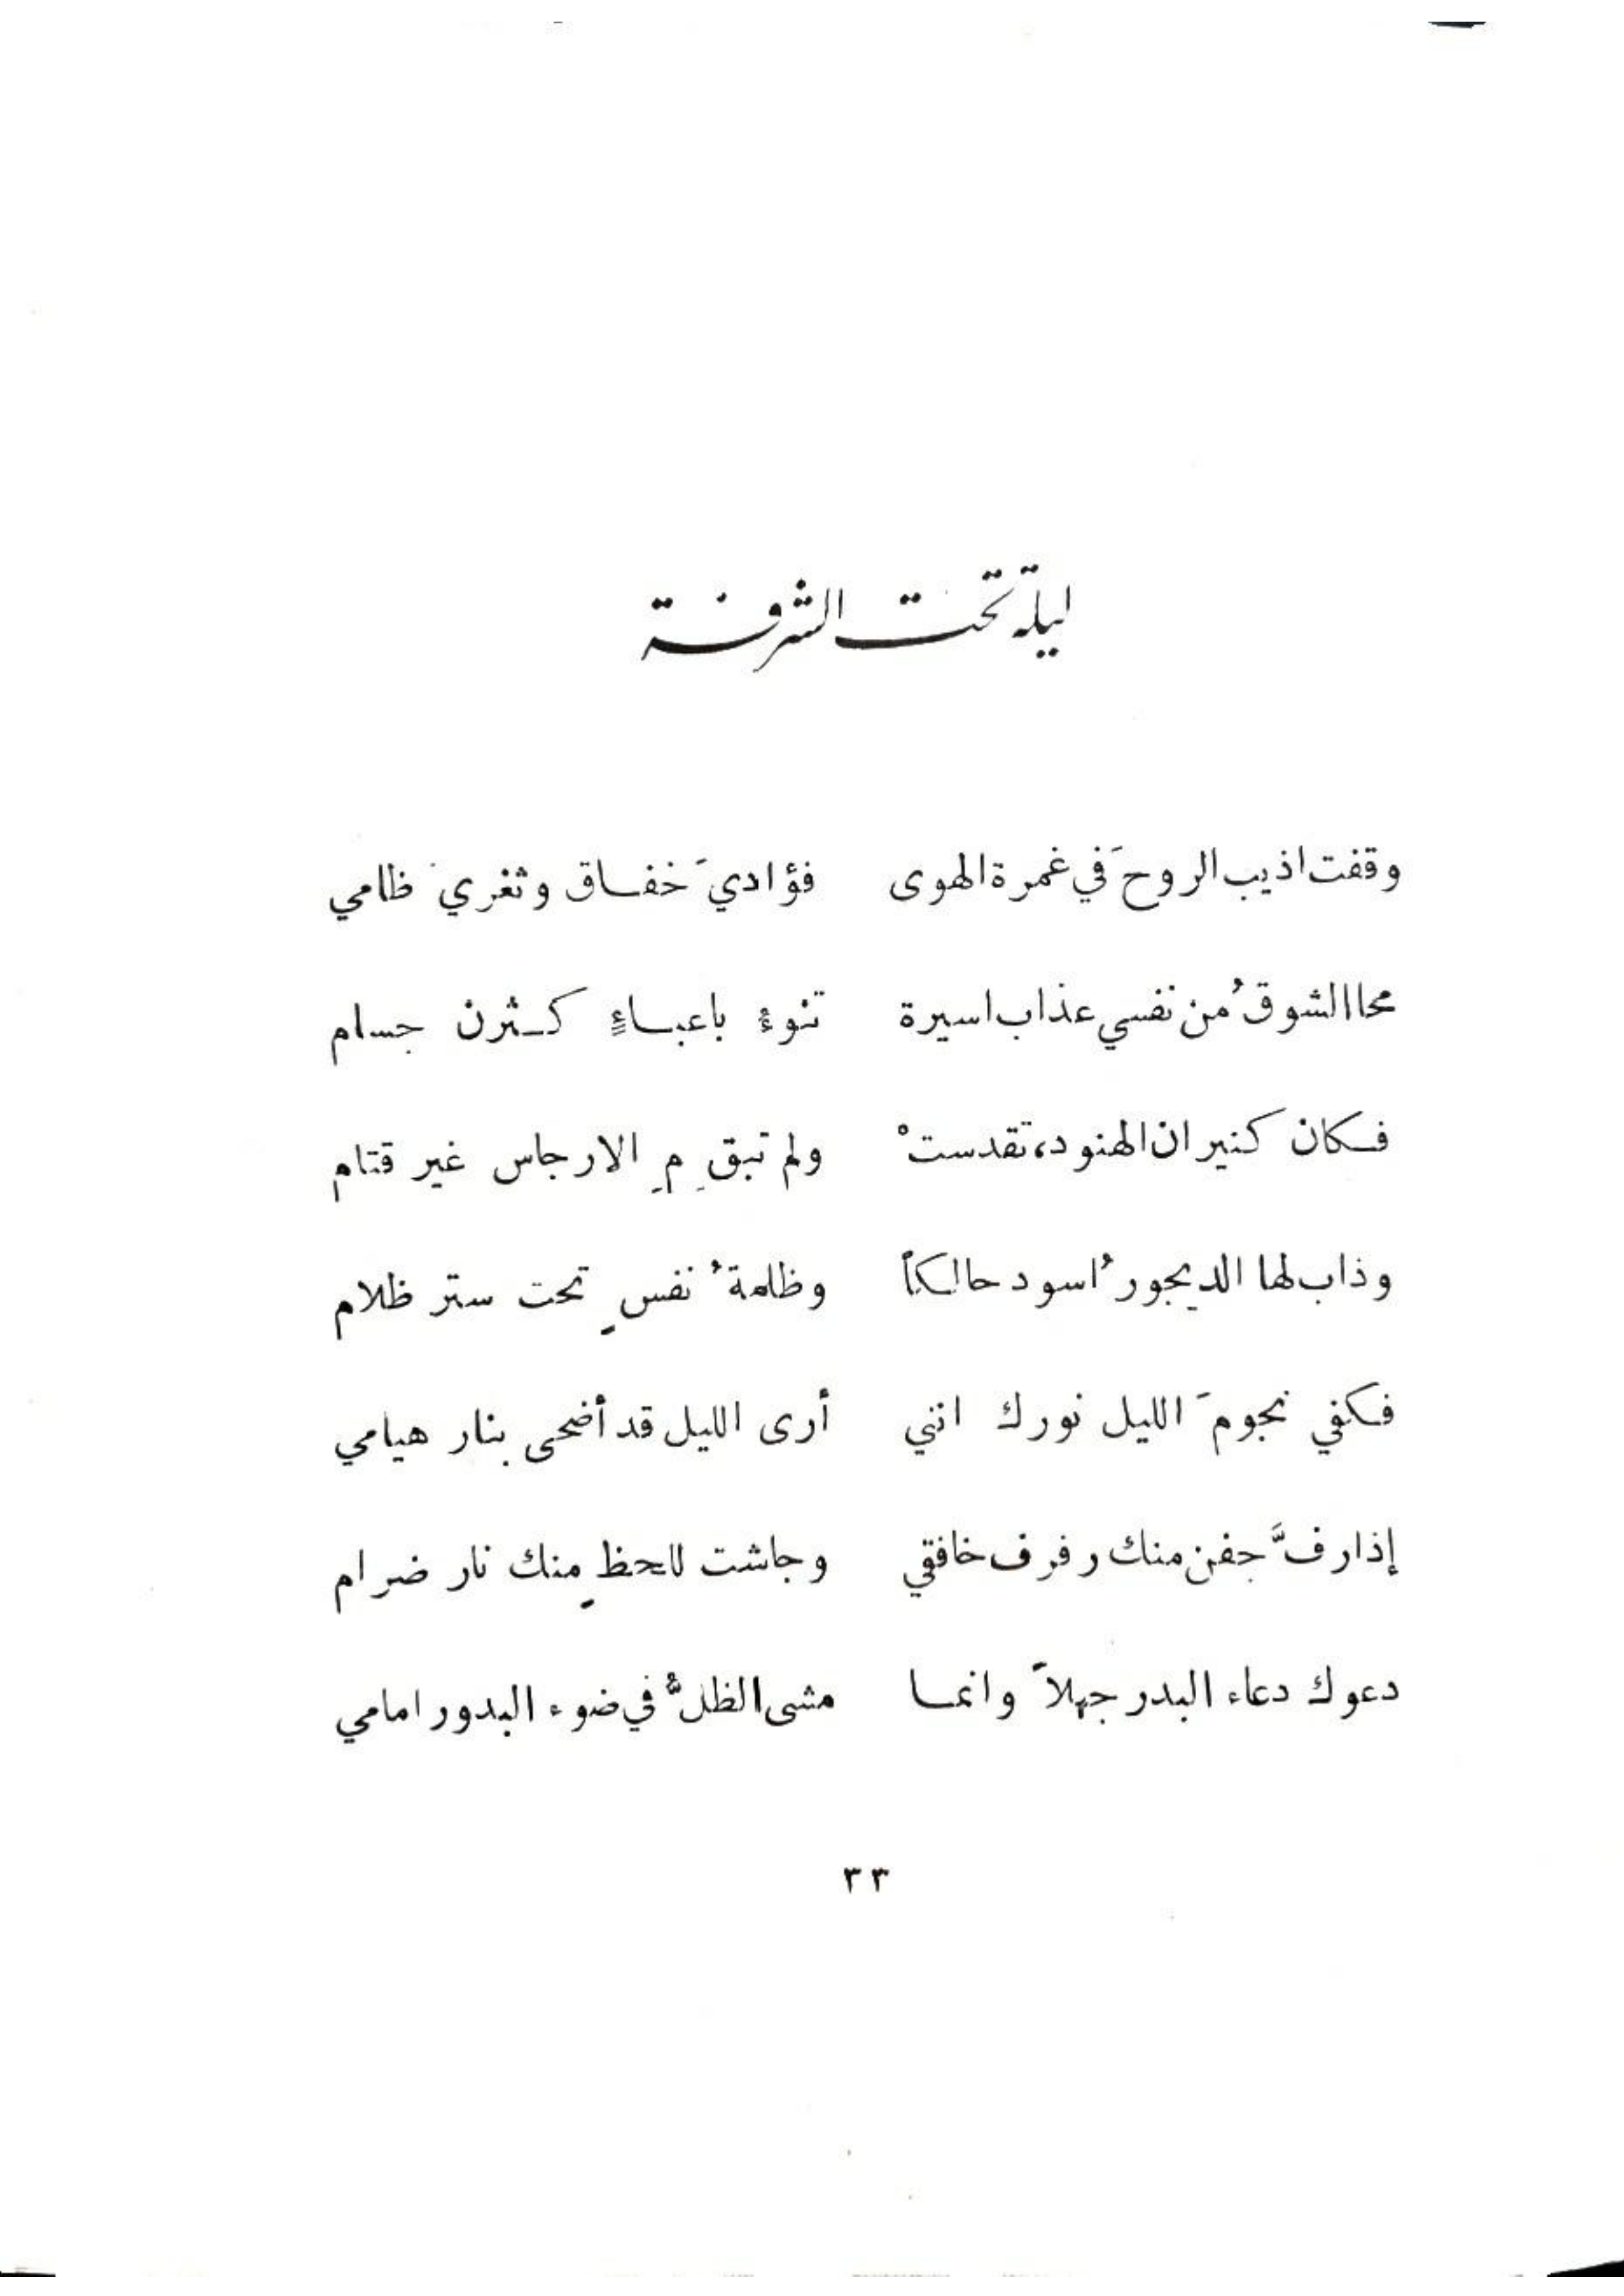 ليلة تحت الشرفة
وقفت اذيب الروحَ في غمرة الهوى فؤاديَ خفاق وثغريَ ظامي
محا الشوقُ من نفسي عذاب اسيرة تنوءُ باعباءٍ كثرن جسام
فكان كنيران الهنود، تقدستْ ولم تبقِ مِ الارجاس غير قتام
وذاب لها الديجورُ اسود حالكاً وظلمةُ نفسٍ تحت ستر ظلام
فكفي نجومَ الليل نورك انني أرى الليل قد أضحى بنار هيامي
إذا رفَّ جفن منك رفرف خافقي وجاشت للحظٍ منك نار ضرام
دعوك دعاء البدر جهلاً وانما مشى الظلُّ في ضوء البدور امامي
٣٣